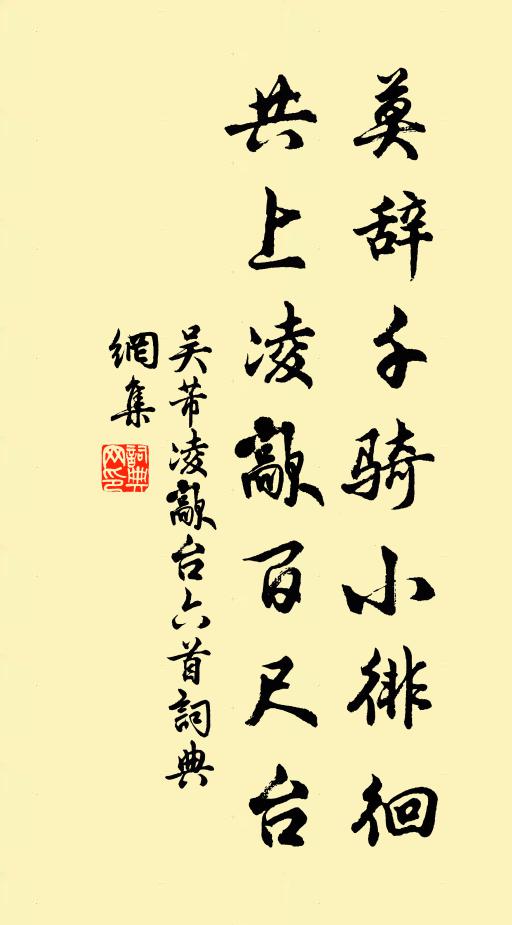 莫辞千骑小徘徊
共上凌歊百尺台
吴芾凌歊台六首詞典
網集
詞典
网印